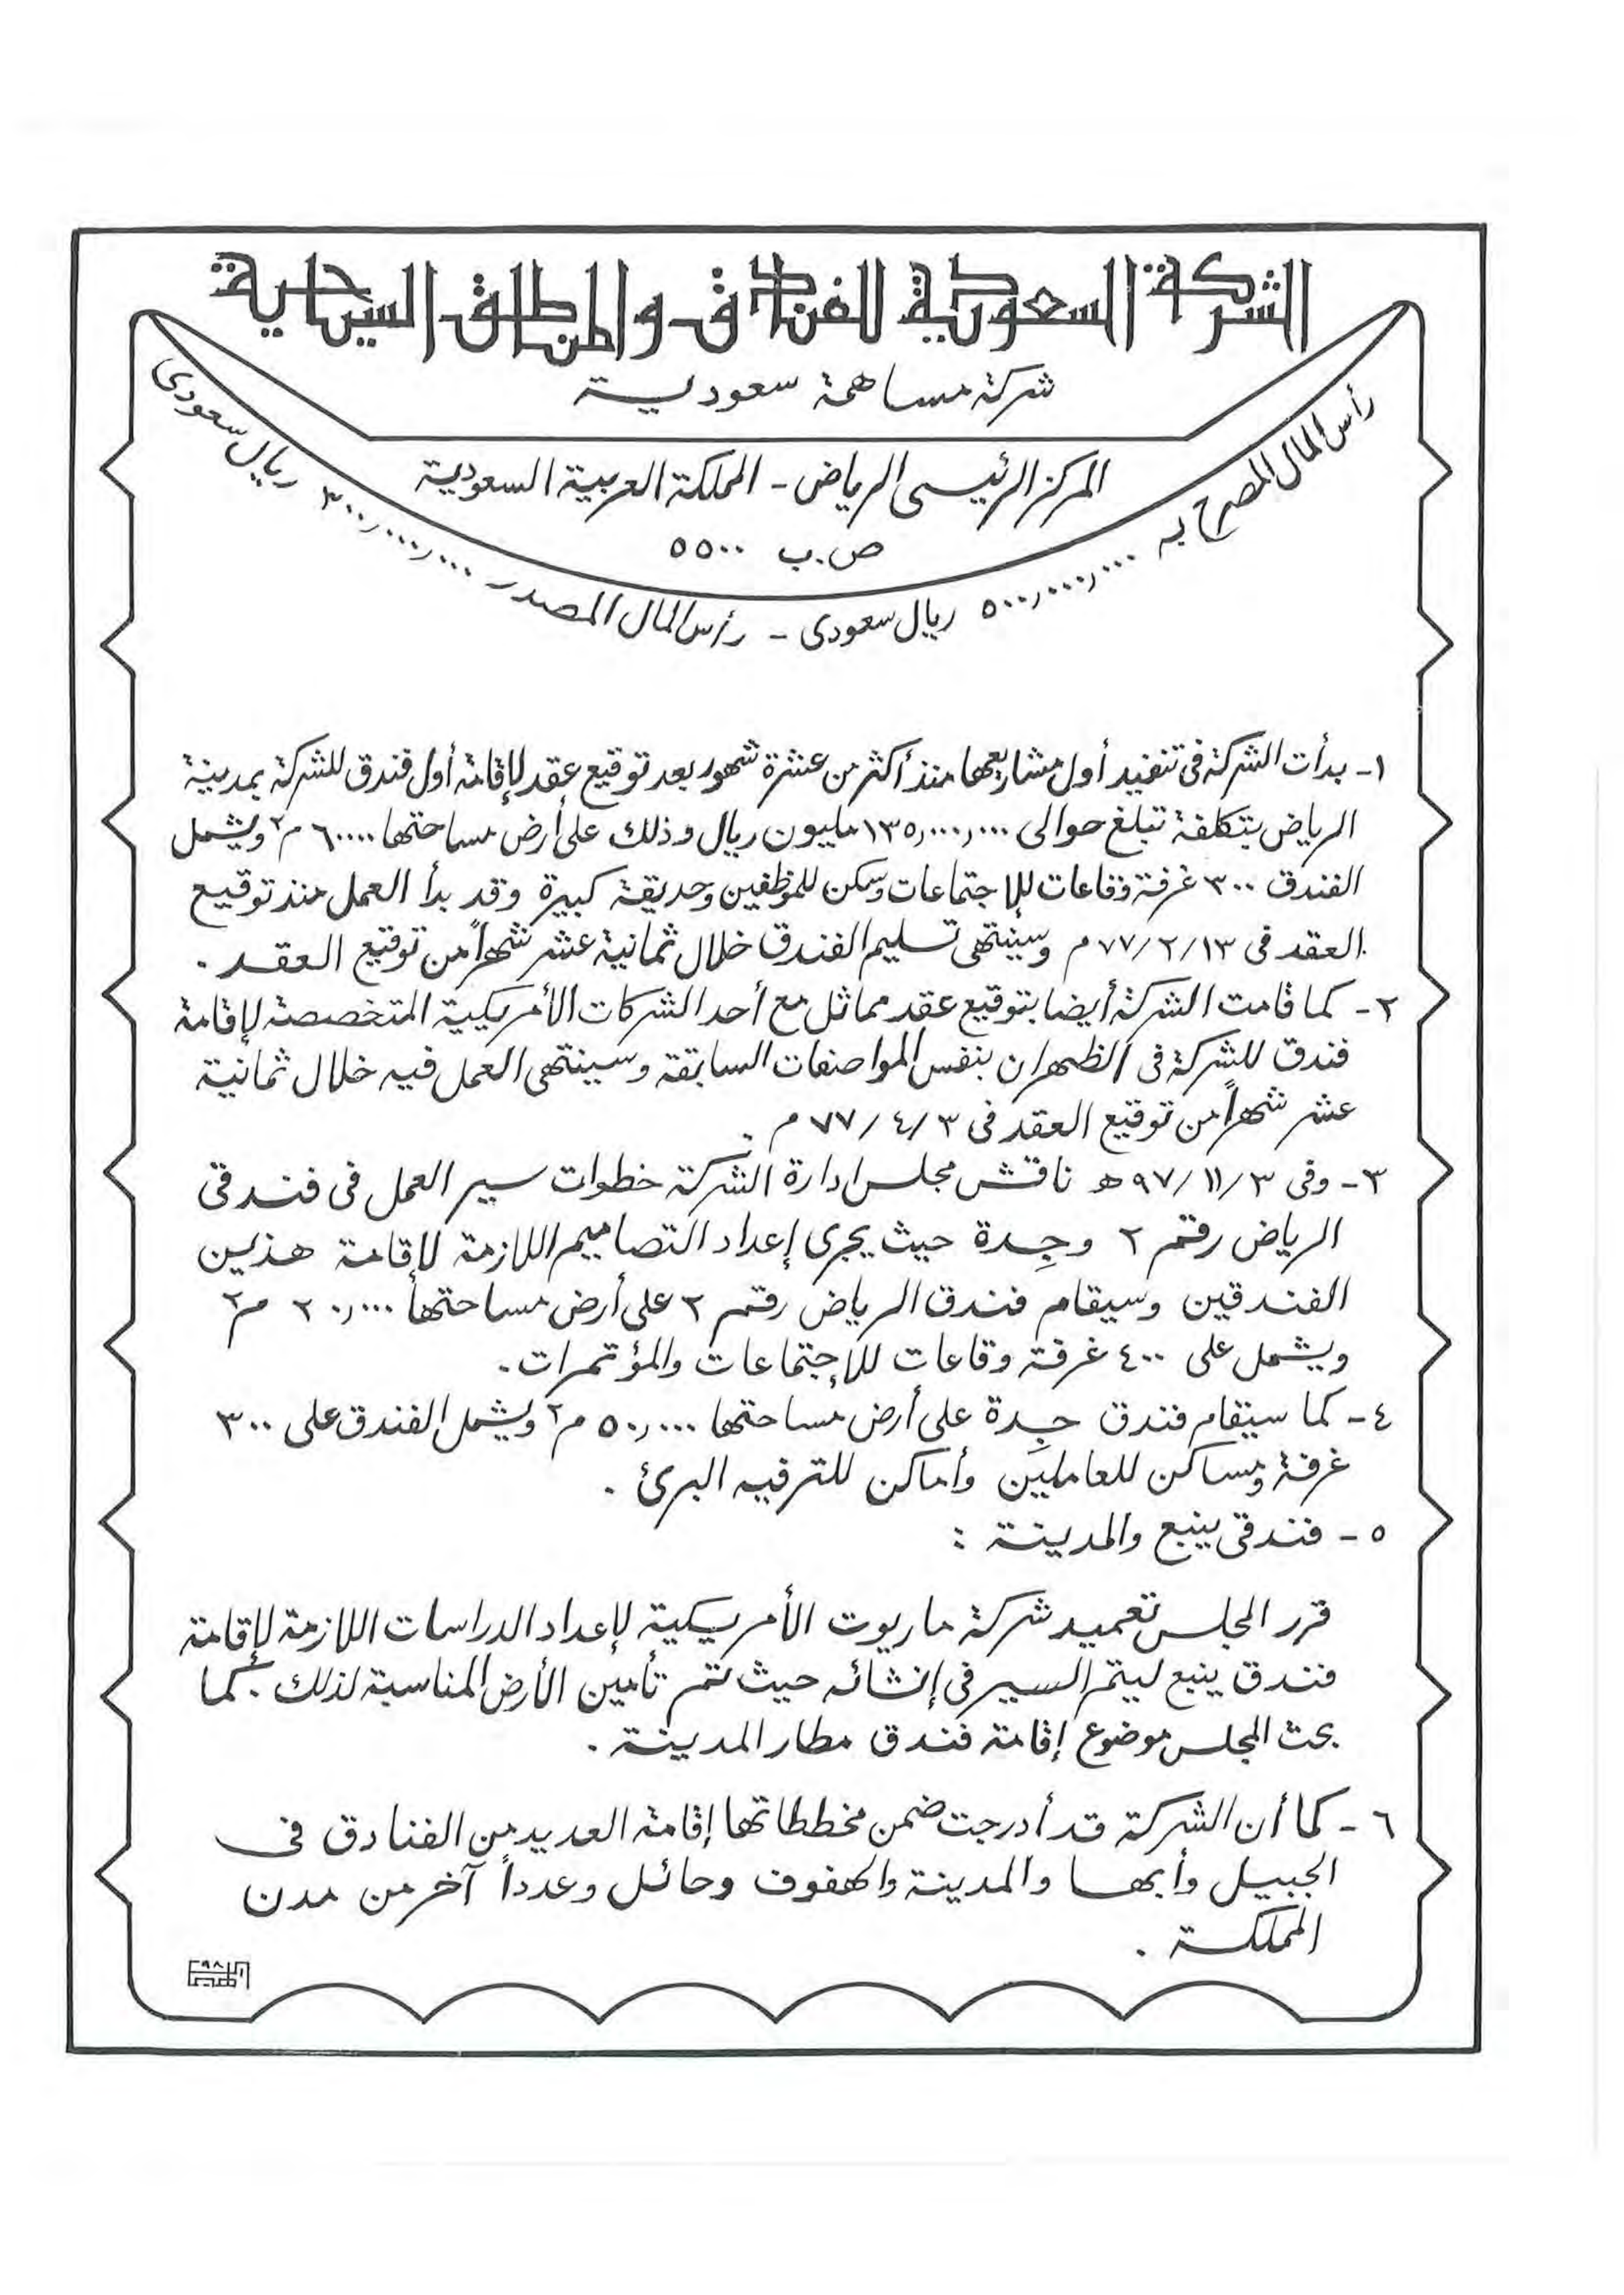 الشركة السعودية للفنادق والمناطق السياحية
شركة مساهمة سعودية
المركز الرئيسى الرياض - المملكة العربية السعودية
ص.ب ٥٥٠٠
رأس المال المصرح به ٥٠٠,٠٠٠,٠٠٠ ريال سعودى - رأس المال المصدر ٣٠٠,٠٠٠,٠٠٠ ريال سعودى
١- بدأت الشركة فى تنفيذ أول مشاريعها منذ أكثر من عشرة شهور بعد توقيع عقد لإقامة أول فندق للشركة بمدينة
الرياض بتكلفة تبلغ حوالى ١٣٥,٠٠٠,٠٠٠ مليون ريال وذلك على أرض مساحتها ٦٠٠٠٠ م٢ ويشمل
الفندق ٣٠٠ غرفة وقاعات للإجتماعات وسكن للموظفين وحديقة كبيرة وقد بدأ العمل منذ توقيع
العقد فى ٧٧/٢/١٣ م وسينتهى تسليم الفندق خلال ثمانية عشر شهراً من توقيع العقد .
٢- كما قامت الشركة أيضا بتوقيع عقد مماثل مع أحد الشركات الأمريكية المتخصصة لإقامة
فندق للشركة فى الظهران بنفس المواصفات السابقة وسينتهى العمل فيه خلال ثمانية
عشر شهراً من توقيع العقد فى ٧٧/٤/٣ م .
٣- وفى ٩٧/١١/٣ هـ ناقش مجلس ادارة الشركة خطوات سير العمل فى فندقى
الرياض رقم ٢ وجِدة حيث يجرى إعداد التصاميم اللازمة لإقامة هذين
الفندقين وسيقام فندق الرياض رقم ٢ على أرض مساحتها ٢٠,٠٠٠ م٢
ويشمل على ٤٠٠ غرفة وقاعات للإجتماعات والمؤتمرات .
٤- كما سيقام فندق جِدة على أرض مساحتها ٥٠,٠٠٠ م٢ ويشمل الفندق على ٣٠٠
غرفة ومساكن للعاملين وأماكن للترفيه البرئ .
٥- فندقى ينبع والمدينة :
قرر المجلس تعميد شركة ماريوت الأمريكية لإعداد الدراسات اللازمة لإقامة
فندق ينبع ليتم السير فى إنشائه حيث تم تأمين الأرض المناسبة لذلك . كما
بحث المجلس موضوع إقامة فندق مطار المدينة .
٦- كما أن الشركة قد أدرجت ضمن مخططاتها إقامة العديد من الفنادق فى
الجبيل وأبها والمدينة والهفوف وحائل وعدداً آخر من مدن
المملكة .